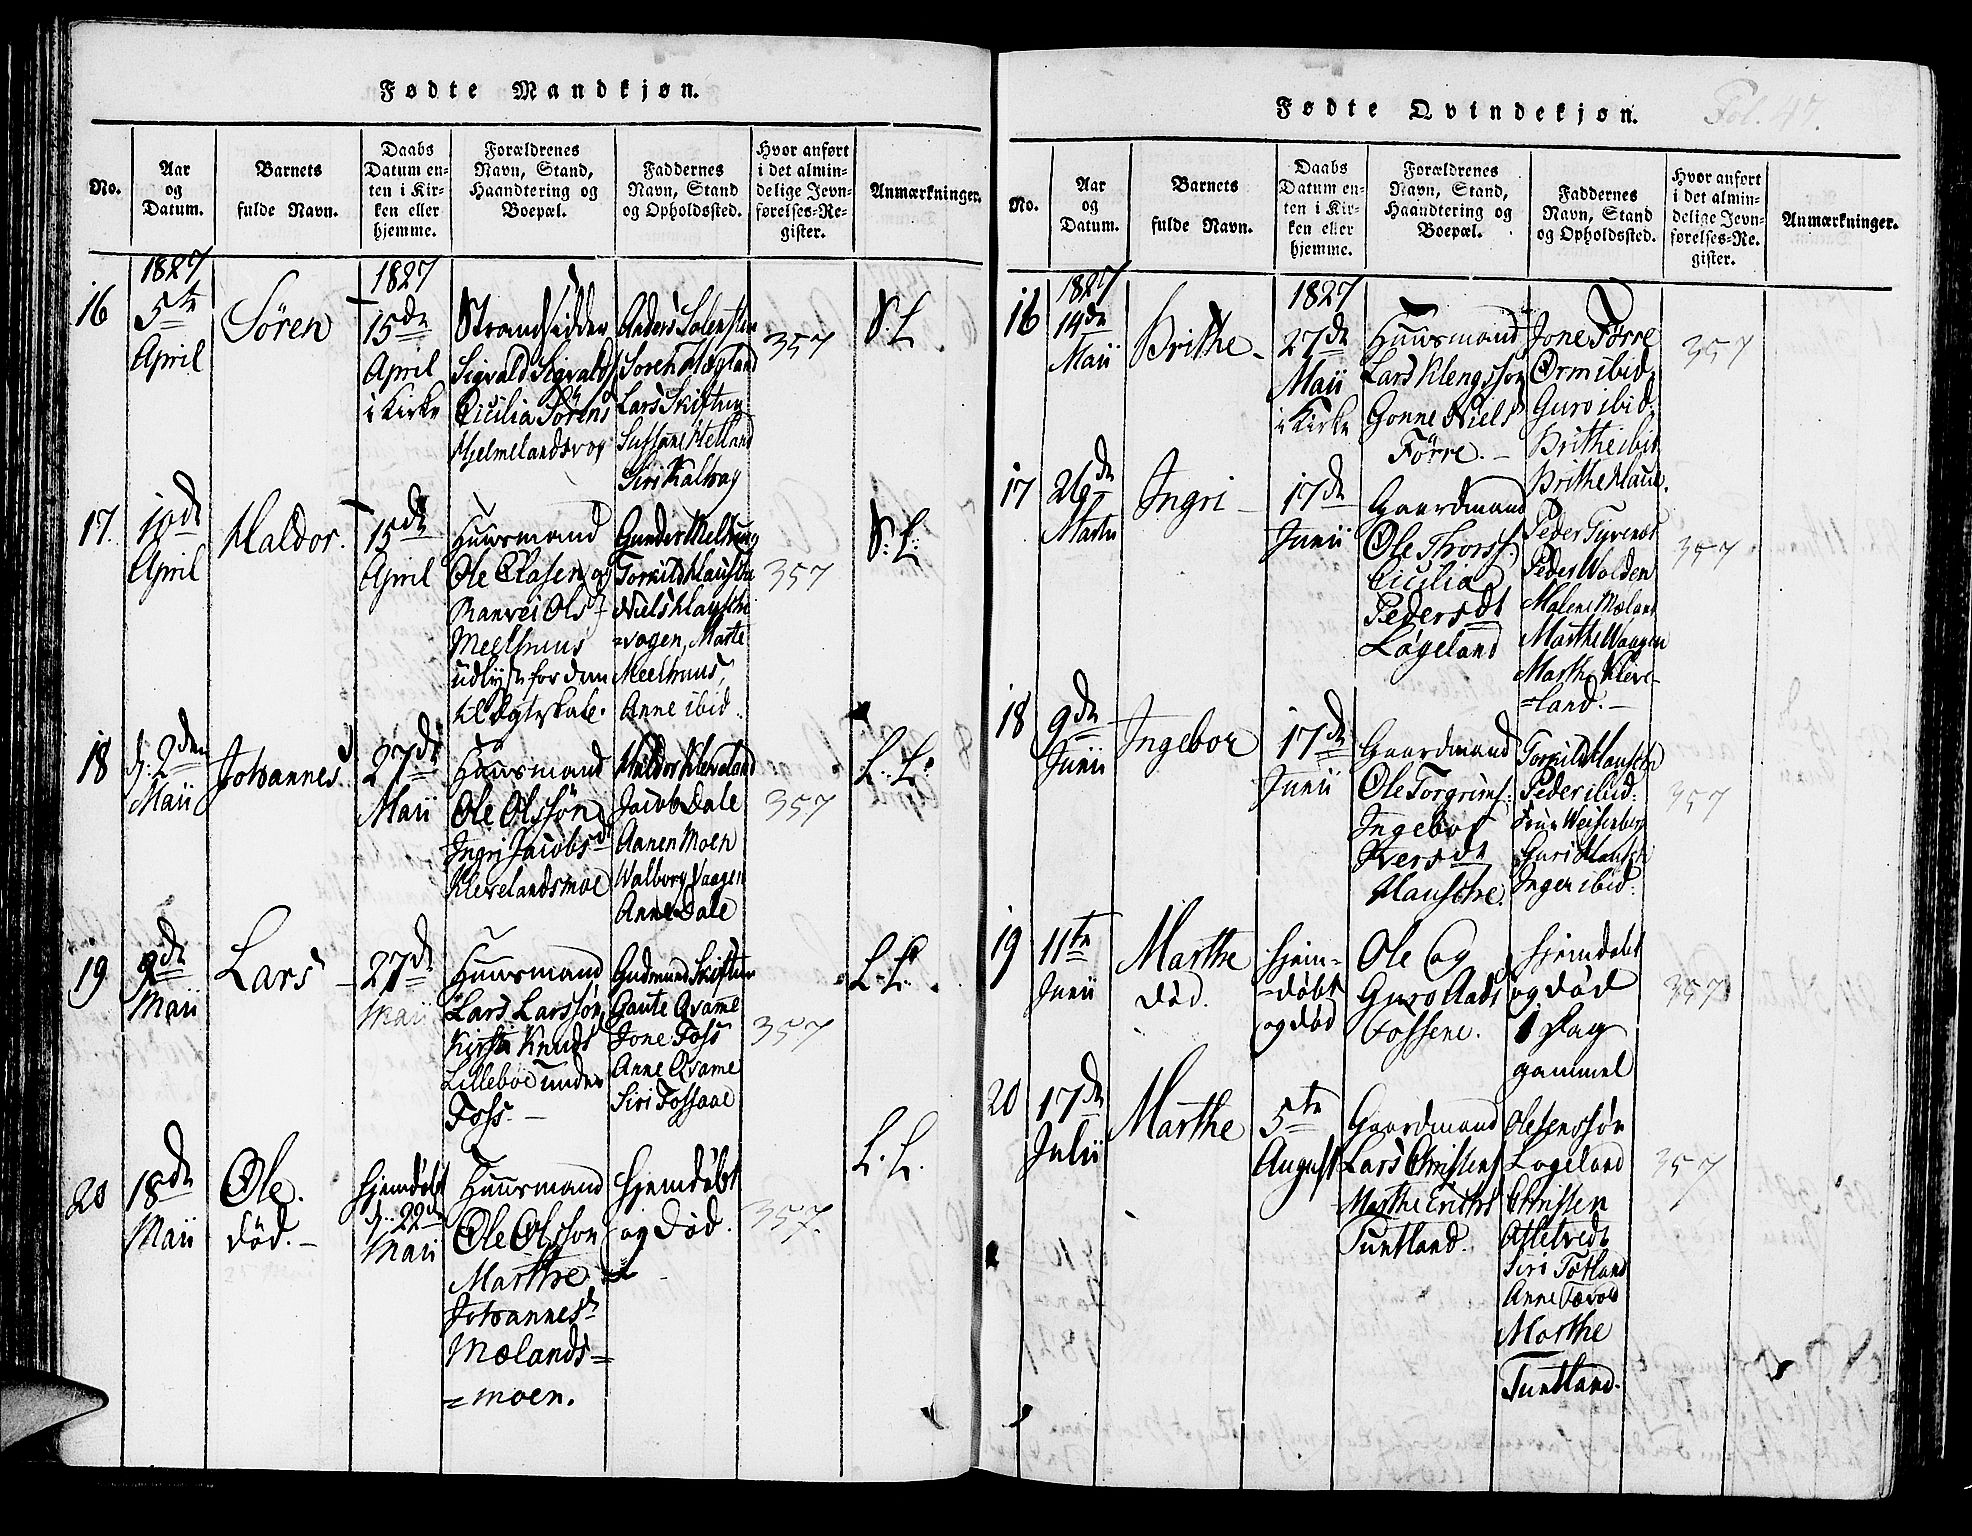 Fødte Mandkjøn.
No.
Aar
og
Datum.
Barnets
fulde Navn.
Daabs
Datum en-
ten i Kir-
ken eller
hjemme.
Forældrenes
Navn, Stand,
Haandtering og
Boepæl.
Faddernes
Navn, Stand
og Opholdssted.
Hvor anført
i det almin-
delige Jevn-
førelses-Re-
gister.
Anmærkninger.
16
1827
5te
April
Sören
1827
15de
April
i Kirke
Strandsidder
Sigvald Sigvalds
Cicilia Sörens
Hjelmelandsvog
Anders
Soren Mægland
Lars Skiftun
Sussane Hetland
Siri Kaltvag
357
S. L.
17.
10de
April
Haldor.
15de
April
Huusmand
Ole Olasen og
Ranvei Ols
Meelhuus
udlyst for dem
til Ægteskab.
Gunder
Torkild Hausken
Niels Hauske
=vogen, Marte
Meelhuus,
Anne ibid.
357
S. L.
18
d: 2den
Maii
Johannes
27de
Maii
Huusmand
Ole Olssön
Ingri Jacobsd
Klevelandsmoe
Haldor Kleveland
Jacob Dale
Aanen Moen
Walborg Vaagen
Anne Dale
357
L. L.
19
9de
Maii
Lars
27de
Maii
Huusmand
Lars Larssön,
Kirsti Knuds
Lilleboe under
Foss.
Gudmund Skiftun
Gaute Qvame
Jone Foss
Anne Qvame
Siri Fossaae
357
L. L.
20
18de
Maii
Ole.
död.
Hjemdöbt
d: 22de
Maii
Huusmand
Ole Olsson
Marthe
Johannesd
Mælands=
=moen.
Hjemdöbt
og död.
357.
L. L.
Fødte Qvindekjøn.
Fol. 47.
No.
Aar
og
Datum.
Barnets
fulde Navn.
Daabs
Datum en-
ten i Kir-
ken eller
hjemme.
Forældrenes
Navn, Stand,
Haandtering og
Boepæl.
Faddernes
Navn, Stand
og Opholdssted.
Hvor anført
i det almin-
delige Jevn-
førelses-Re-
gister.
Anmærkninger.
16
1827
14de
Maii
Brithe
1827
27de
Maii
i Kirke
Huusmand
Lars Klengssön
Gonne Niels
Förre.
Jone Förre
Orm ibid,
Guro ibid:
Brithe ibid
Brithe
357
17
26de
Martii
Ingri
17de
Junii
Gaardmand
Ole Thorss
Cicilia
Pedersdt
Lögeland
Peder Tyrenes
Peder Wolden
Malene Mæland
Marthe Waagen
Marthe Kleve-
=land.
357
18
9de
Junii
Ingebor
17de
Junii
Gaardmand
Ole Torgrims:
Ingebor
Iversdt
Hauschee.
Torkild Hausken
Peder ibid:
Frue Weisenberg
Guri Hausk
Inger ibid:
357
19
11te
Junii
Marthe
död.
Hjem-
=döbt
og död
Ole og
Guro Aads
Fossene.
Hjemdöbt
og död
1 Dag
gammel
357
20
17de
Julii
Marthe
5te
August
Gaardmand
Lars Christens
Marthe Erichs
Tuntland.
Ole Jenssön
Logeland
Christen
Atletvedt
Siri Totland
Anne Tævold
Marthe
Tuntland.
357